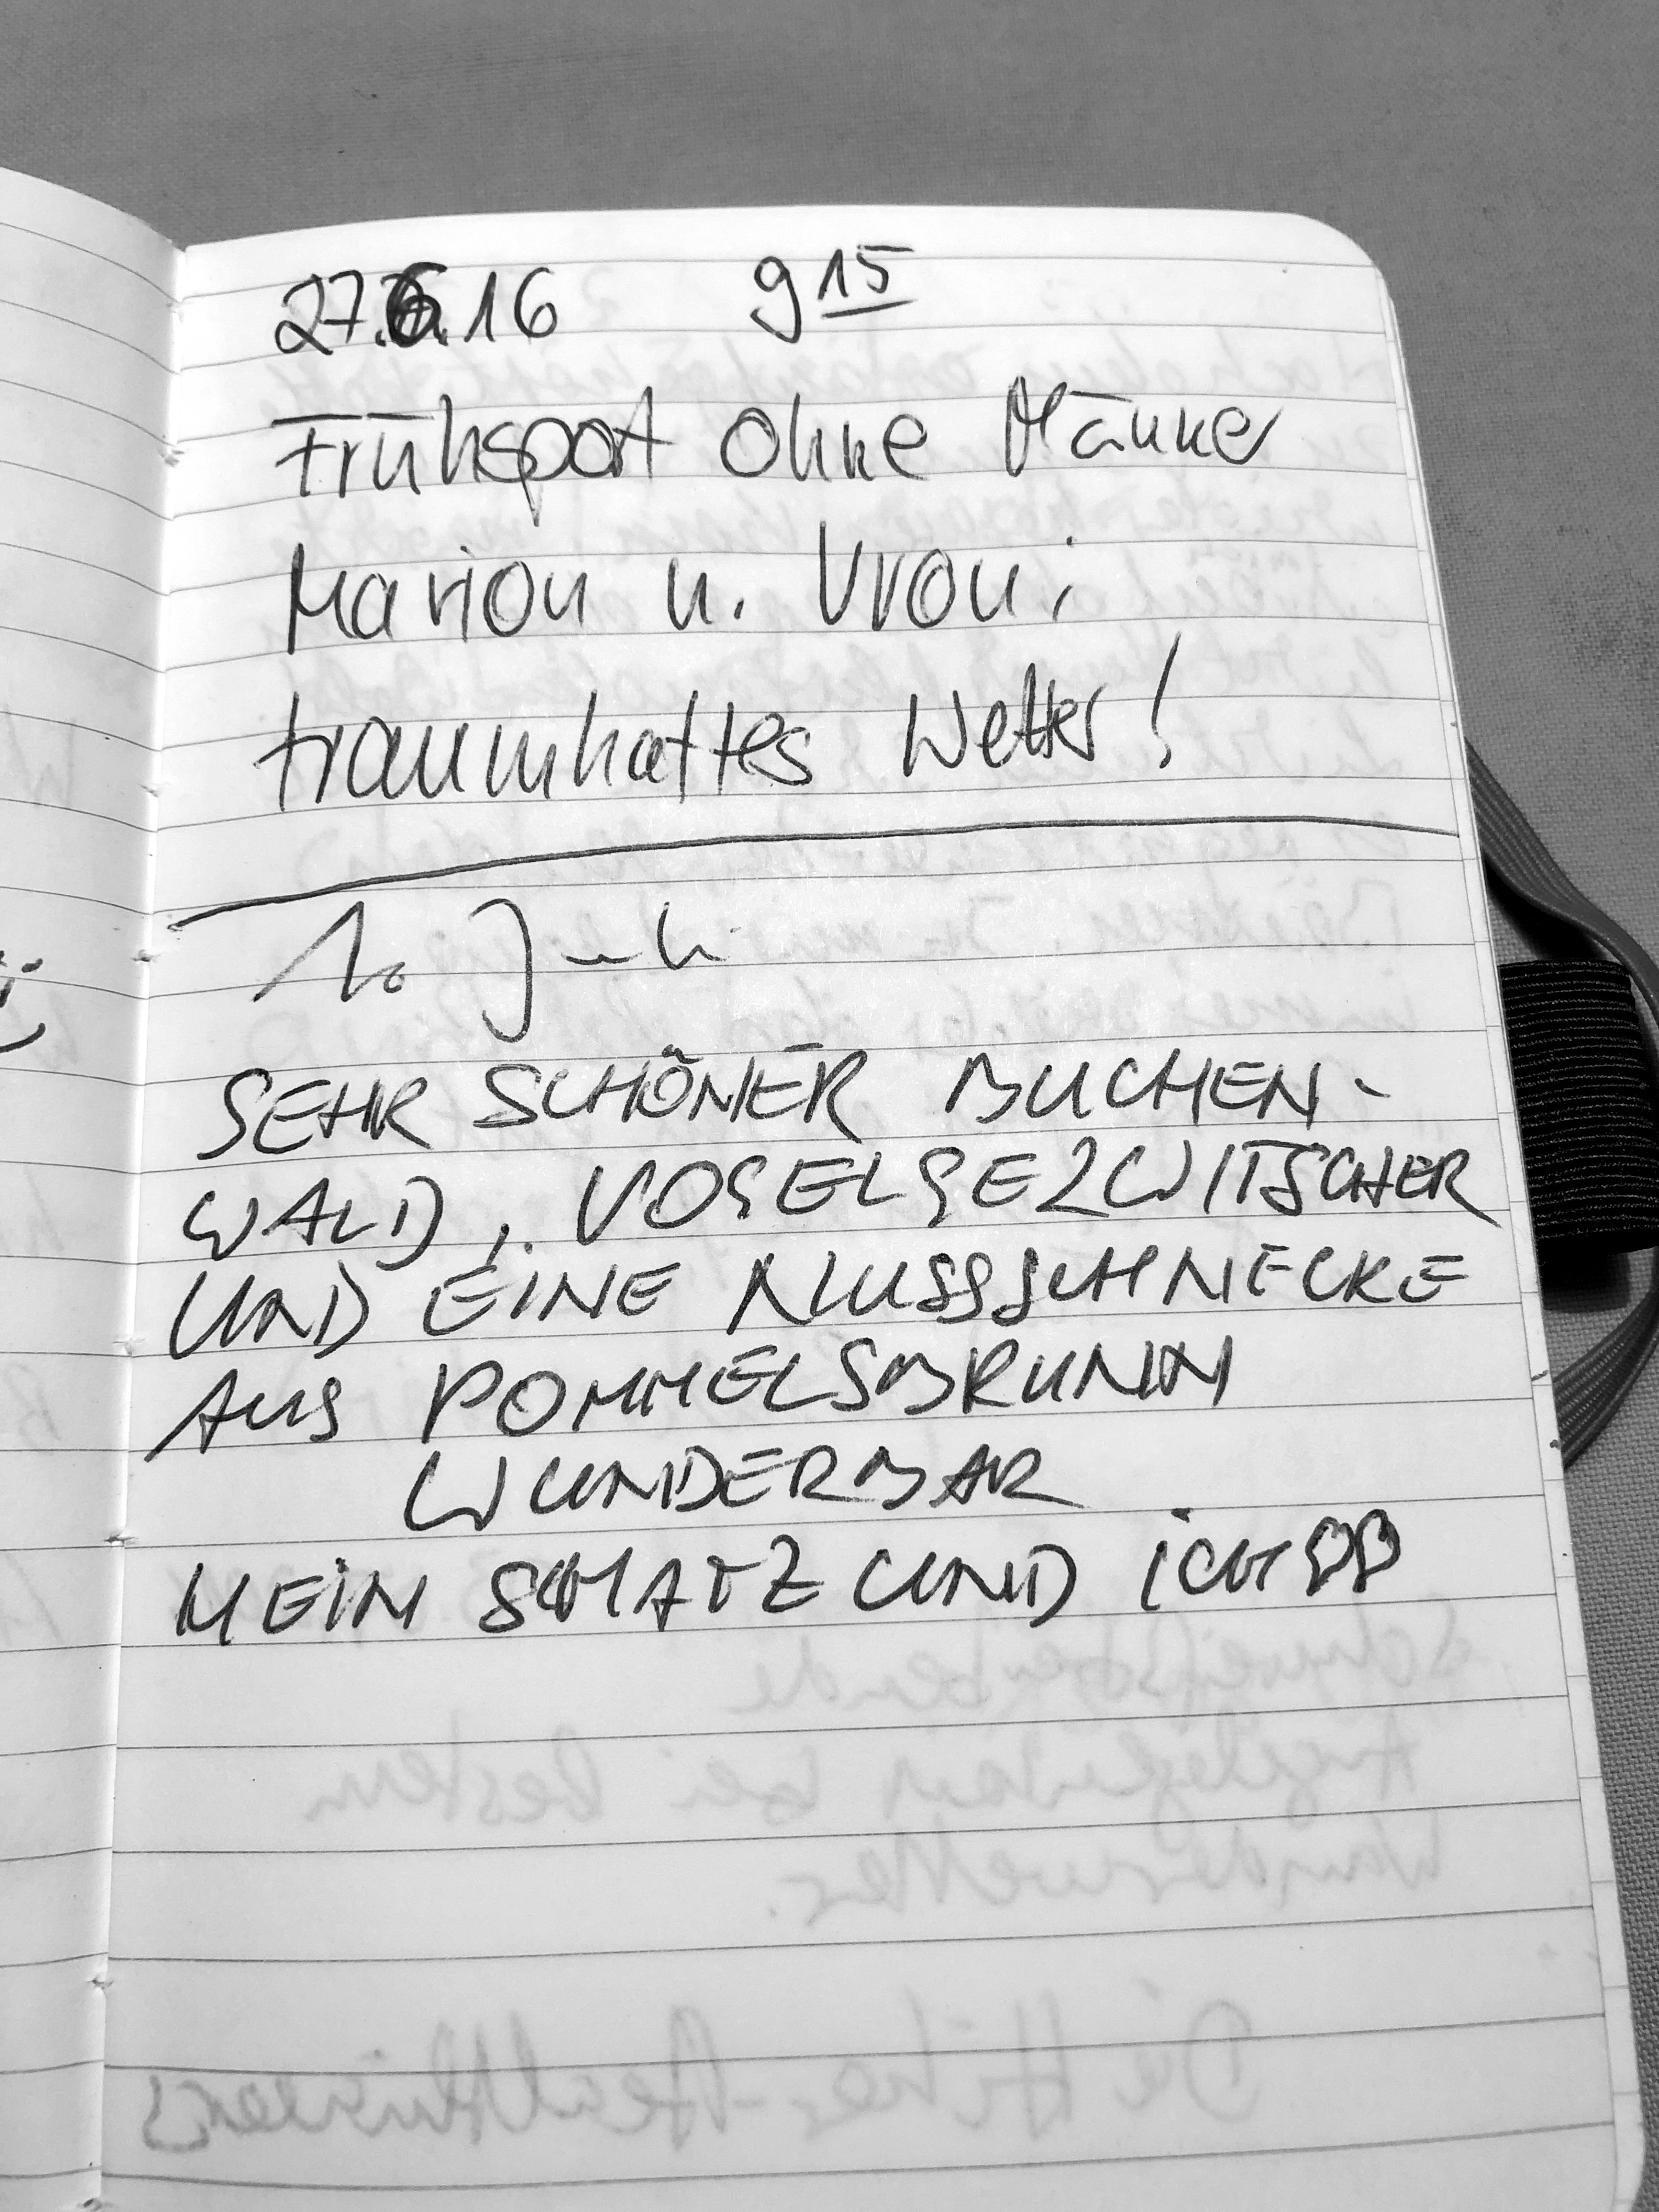 27.6.16 9 15
Frühsport ohne Männer
Marion u. Vroni
traumhaftes Wetter!
1. Juli
SEHR SCHÖNER BUCHEN-
WALD, VOGELGEZWITSCHER
UND EINE NUSSSCHNECKE
AUS POMMELSBRUNN
WUNDERBAR
MEIN SCHATZ UND ICH